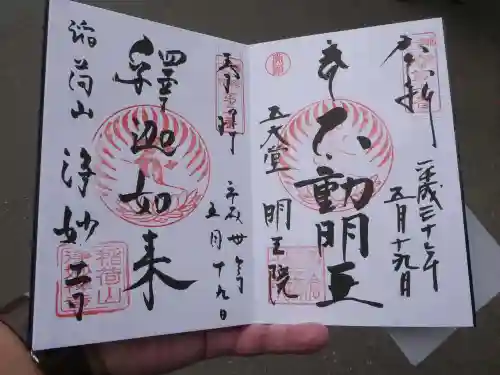 平成三十年
五月十九日
不動明王
五大堂
明王院
奉拝
平成卅年
五月十九日
釋迦如来
稲荷山
浄妙寺
稲荷山
浄妙寺